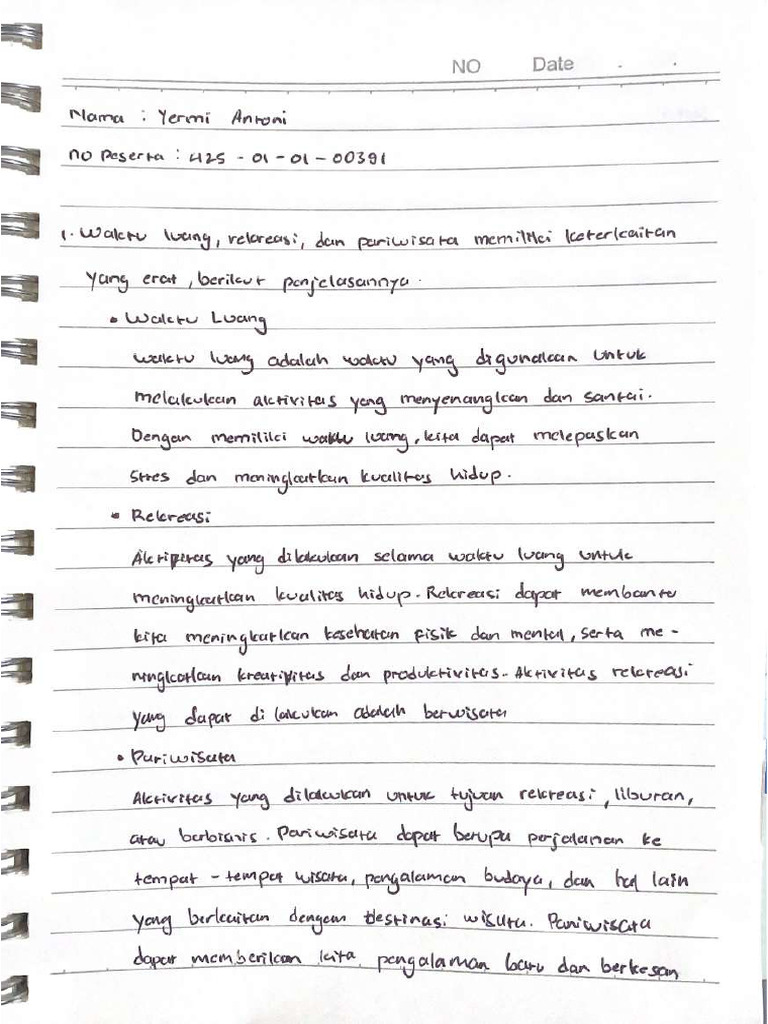 NO Date
Nama : Yermi Antoni
No Peserta : 425 - 01 - 01 - 00391
1. Waktu luang, rekreasi, dan pariwisata memiliki keterkaitan
yang erat, berikut penjelasannya.
• Waktu Luang
Waktu luang adalah waktu yang digunakan untuk
melakukan aktivitas yang menyenangkan dan santai.
Dengan memiliki waktu luang, kita dapat melepaskan
stres dan meningkatkan kualitas hidup.
• Rekreasi
Aktifitas yang dilakukan selama waktu luang untuk
meningkatkan kualitas hidup. Rekreasi dapat membantu
kita meningkatkan kesehatan fisik dan mental, serta me -
ningkatkan kreatifitas dan produktivitas. Aktivitas rekreasi
yang dapat di lakukan adalah berwisata
• Pariwisata
Aktivitas yang dilakukan untuk tujuan rekreasi, liburan,
atau berbisnis. Pariwisata dapat berupa perjalanan ke
tempat - tempat wisata, pengalaman budaya, dan hal lain
yang berkaitan dengan destinasi wisata. Pariwisata
dapat memberikan kita pengalaman baru dan berkesan